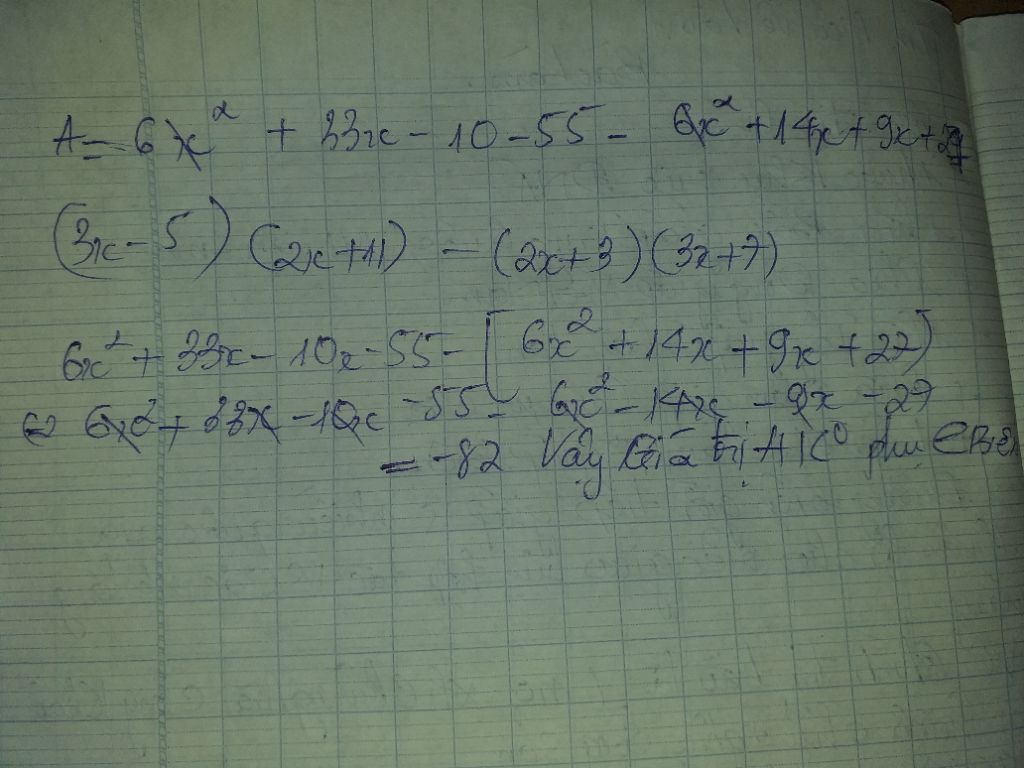 A = 6x² + 33x - 10 - 55 - 6x² + 14x + 9x + 27
(3x - 5) (2x + 11) - (2x + 3) (3x + 7)
6x² + 33x - 10x - 55 - [6x² + 14x + 9x + 27]
⇔ 6x² + 33x - 10x - 55 - 6x² - 14x - 9x - 27
= -82 Vậy Giá trị A K⁰ phụ